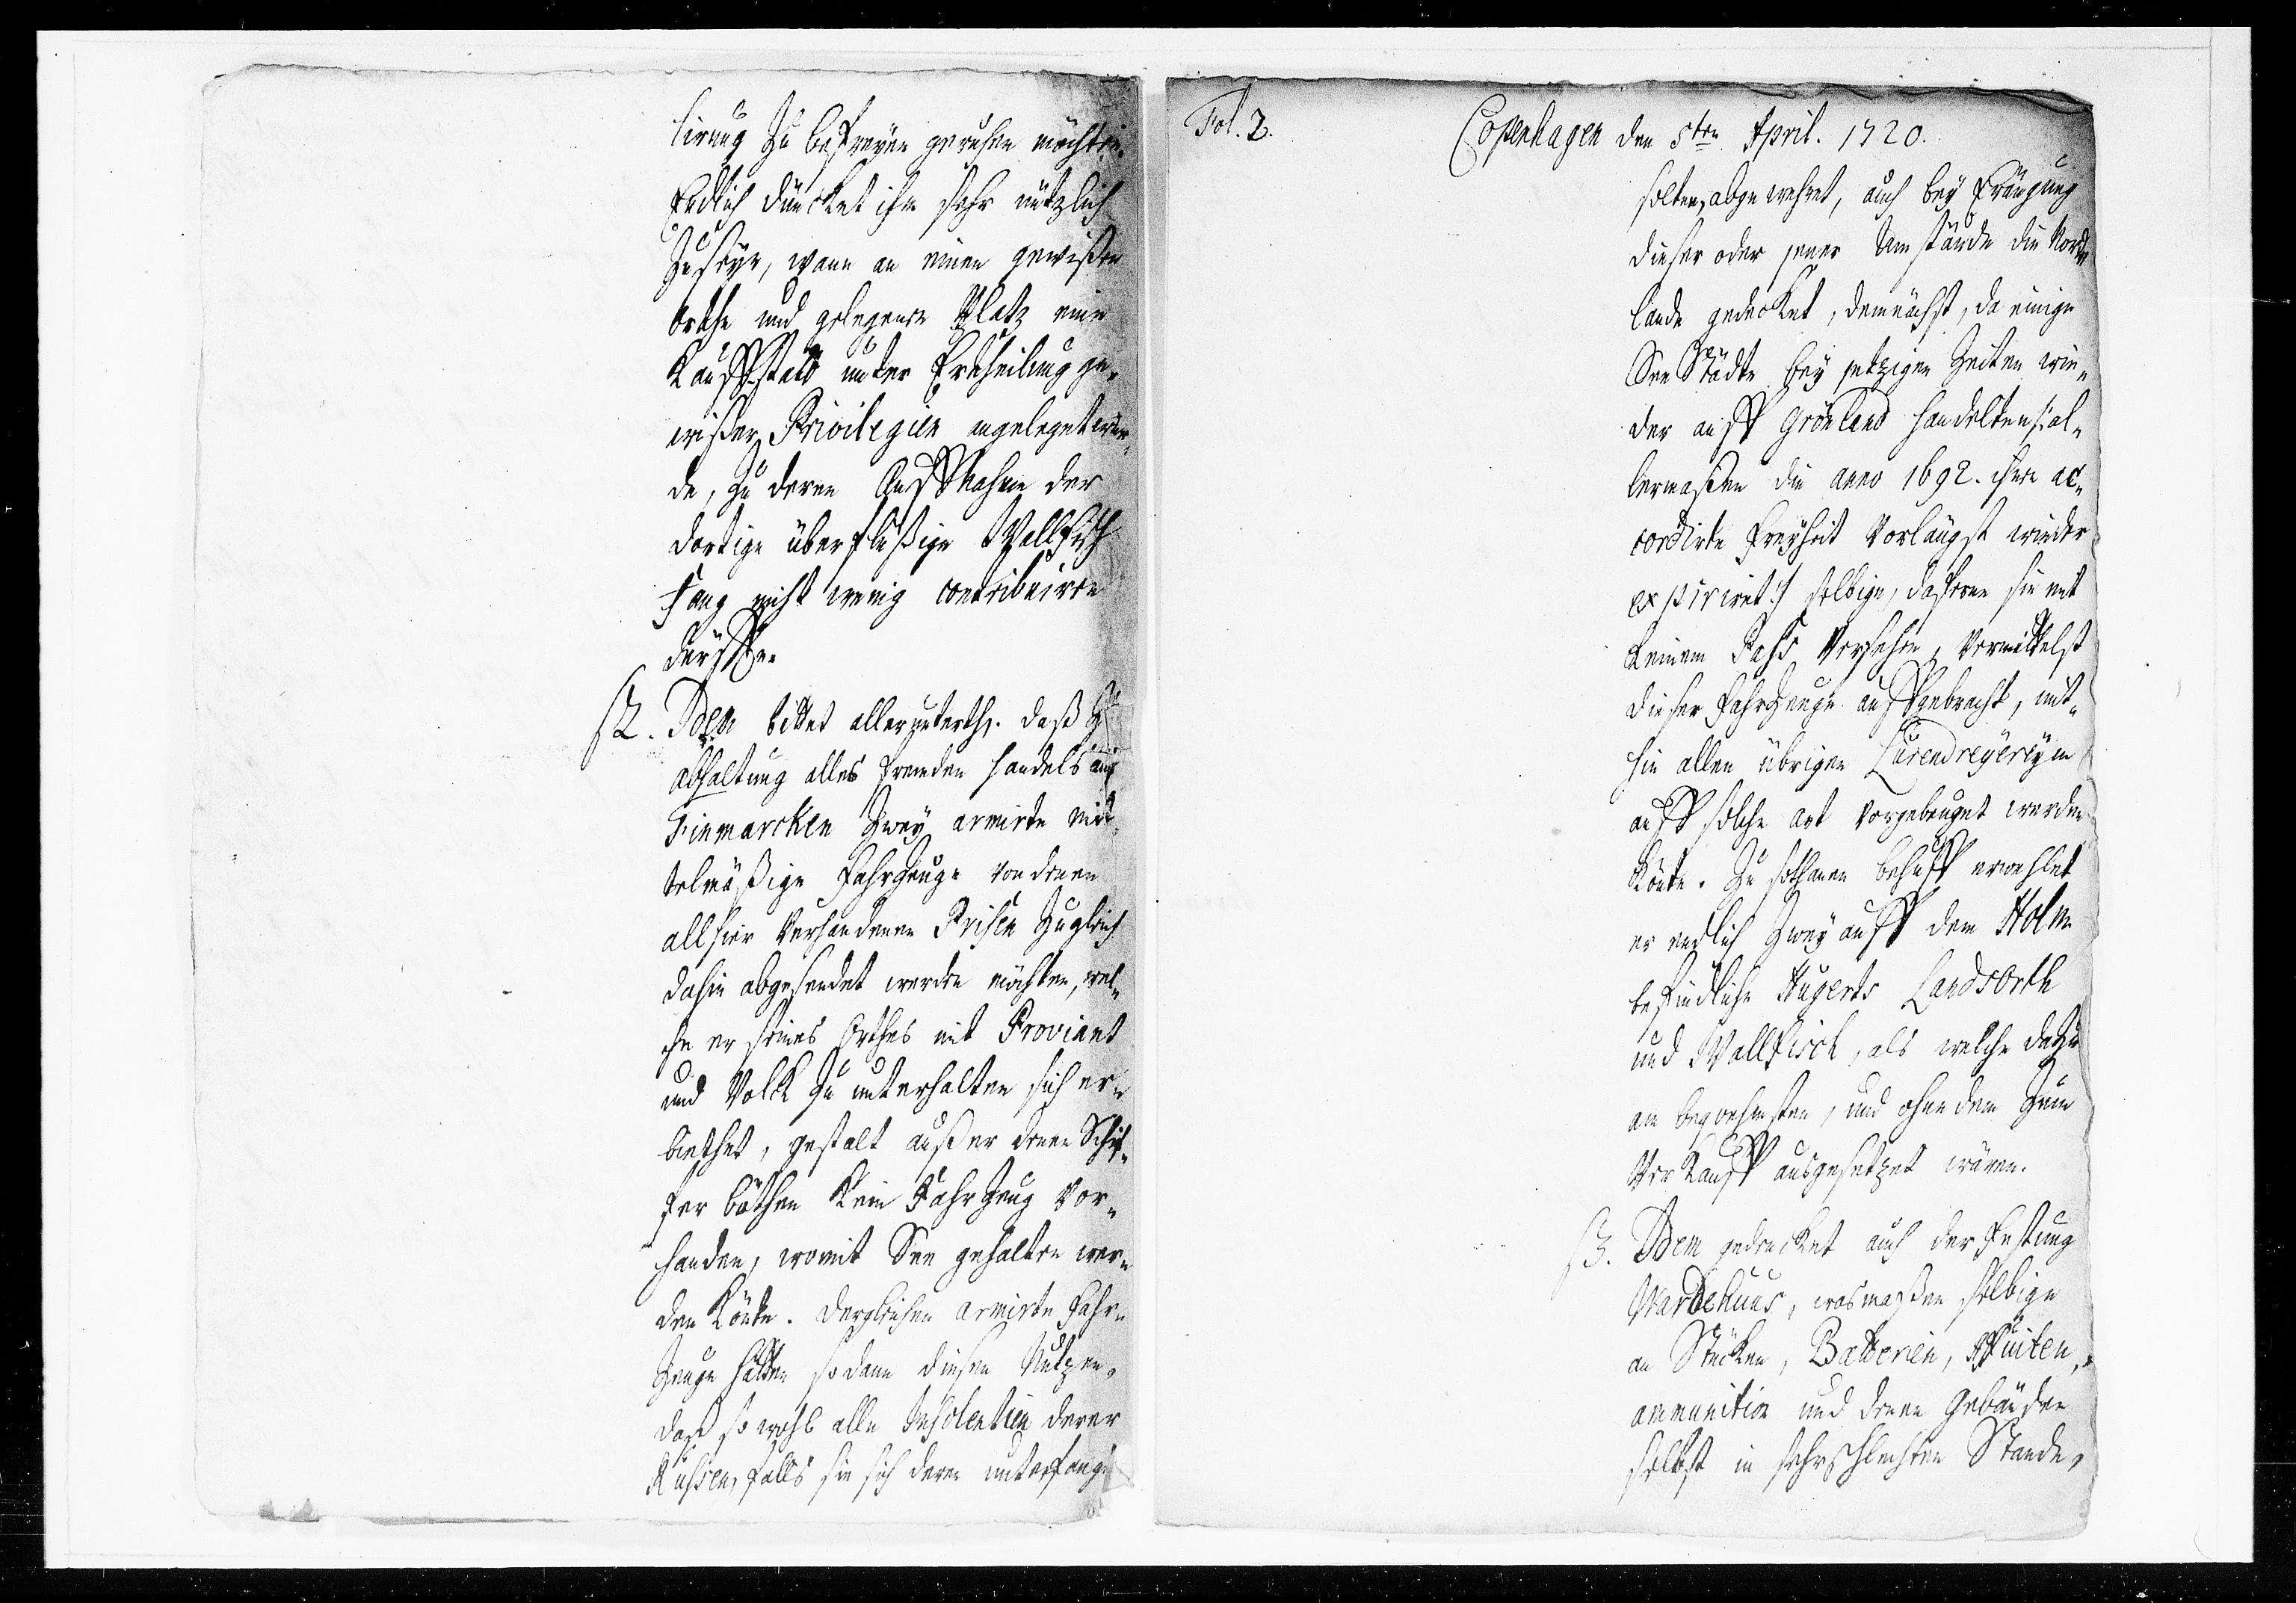 lirung zu befreyen geruhen möchten.
Endlich düncket ihm sehr nützlich
zuseyn, wann an einen gewißen
Orthe und gelegenen Platz eine
Kauffstadt unter Ertheilung ge-
wißer Privilegien angeleget wür-
de, zu deren Auffnahme der
dortige überflüßige Wallfisch
Fang nicht wenig contribuiren
dürffte.
12. Idem bittet allerunterth. daß zu
abhaltung alles frembden handels auf
Finmarcken zwey armirte mit-
telmäßige Fahrzeuge von denen
allhier Verhandenen Prisen zugleich
dahin abgesendet werden möchten, wel-
che er seines Orthes mit Proviant
und Volck zu unterhalten sich er-
biethet, gestalt außer denen Schif-
fer böthen kein Fahrzeug vor-
handen, womit See gehalten wer-
den könte. Dergleichen armirte Fahr-
zeuge hätten sodann diesen Nutzen,
daß so wohl alle Insolentien derer
Russen, falls sie sich deren unterfangen
Fol. 2.
Copenhagen den 5ten April. 1720.
solten, abgewehret, auch bey Eräugung
dieser oder jener Umstände die Nord-
lande gedecket, demnächst, da einige
See Städte bey jetzigen Zeiten wie-
der auff Grönland handelten /: al-
lermaßen die anno 1692. ihnen ac-
cordirte Freyheit Vorlängst wieder
expiriret :/ selbige, dafern sie mit
keinem Pass Versehen, Vermittelst
dieser Fahrzeuge auffgebracht, mit-
hin allen übrigen Lurendreyereyen
auff solche art vorgebeuget werden
könte. Zu sothanen behuff erwehlet
er endlich zwey auff dem Holm
befindliche Hugerts Landsorth
und Wallfisch, als welche dazu
am beqvehmsten, und ohne dem zum
Verkauff ausgesetzet wären.
13. Idem gedencket auch der Festung
Wardehuus, wasmaßen selbige
an Stücken, Batterien, Affuiten,
ammunition und denen Gebäuden
selbst in sehr schlechten Stande,